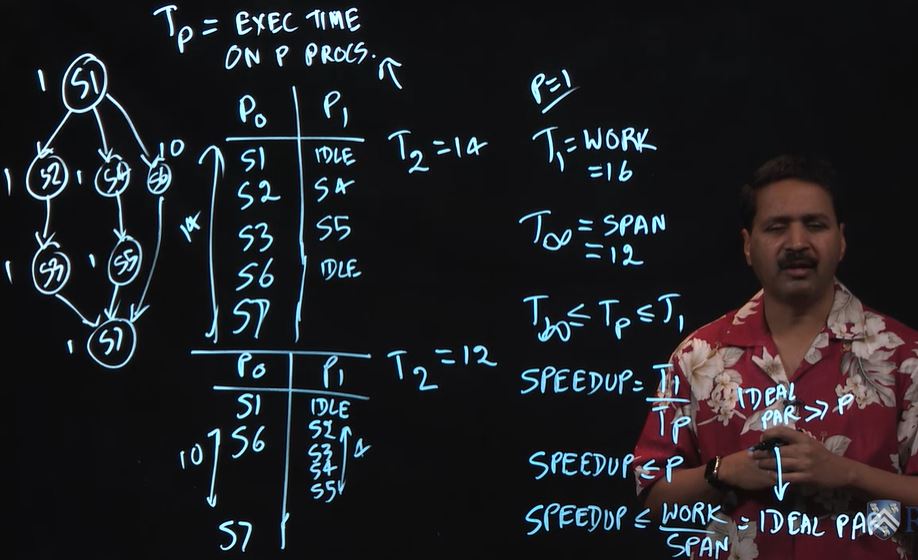 Tp = EXEC TIME
ON P PROCS.
1 S1
10
1 S2 1 S4 S6
1 S3 1 S5
1 S7
P0 P1
S1 IDLE
S2 S4
S3 S5
S6 IDLE
S7
14
T2 = 14
P0 P1
S1 IDLE
S6 S2
S3
S4
S5
S7
10
4
T2 = 12
P=1
T1 = WORK
= 16
T∞ = SPAN
= 12
T∞ ≤ Tp ≤ T1
SPEEDUP = T1
Tp
IDEAL
PAR >> P
SPEEDUP ≤ P
SPEEDUP ≤ WORK = IDEAL PAR
SPAN